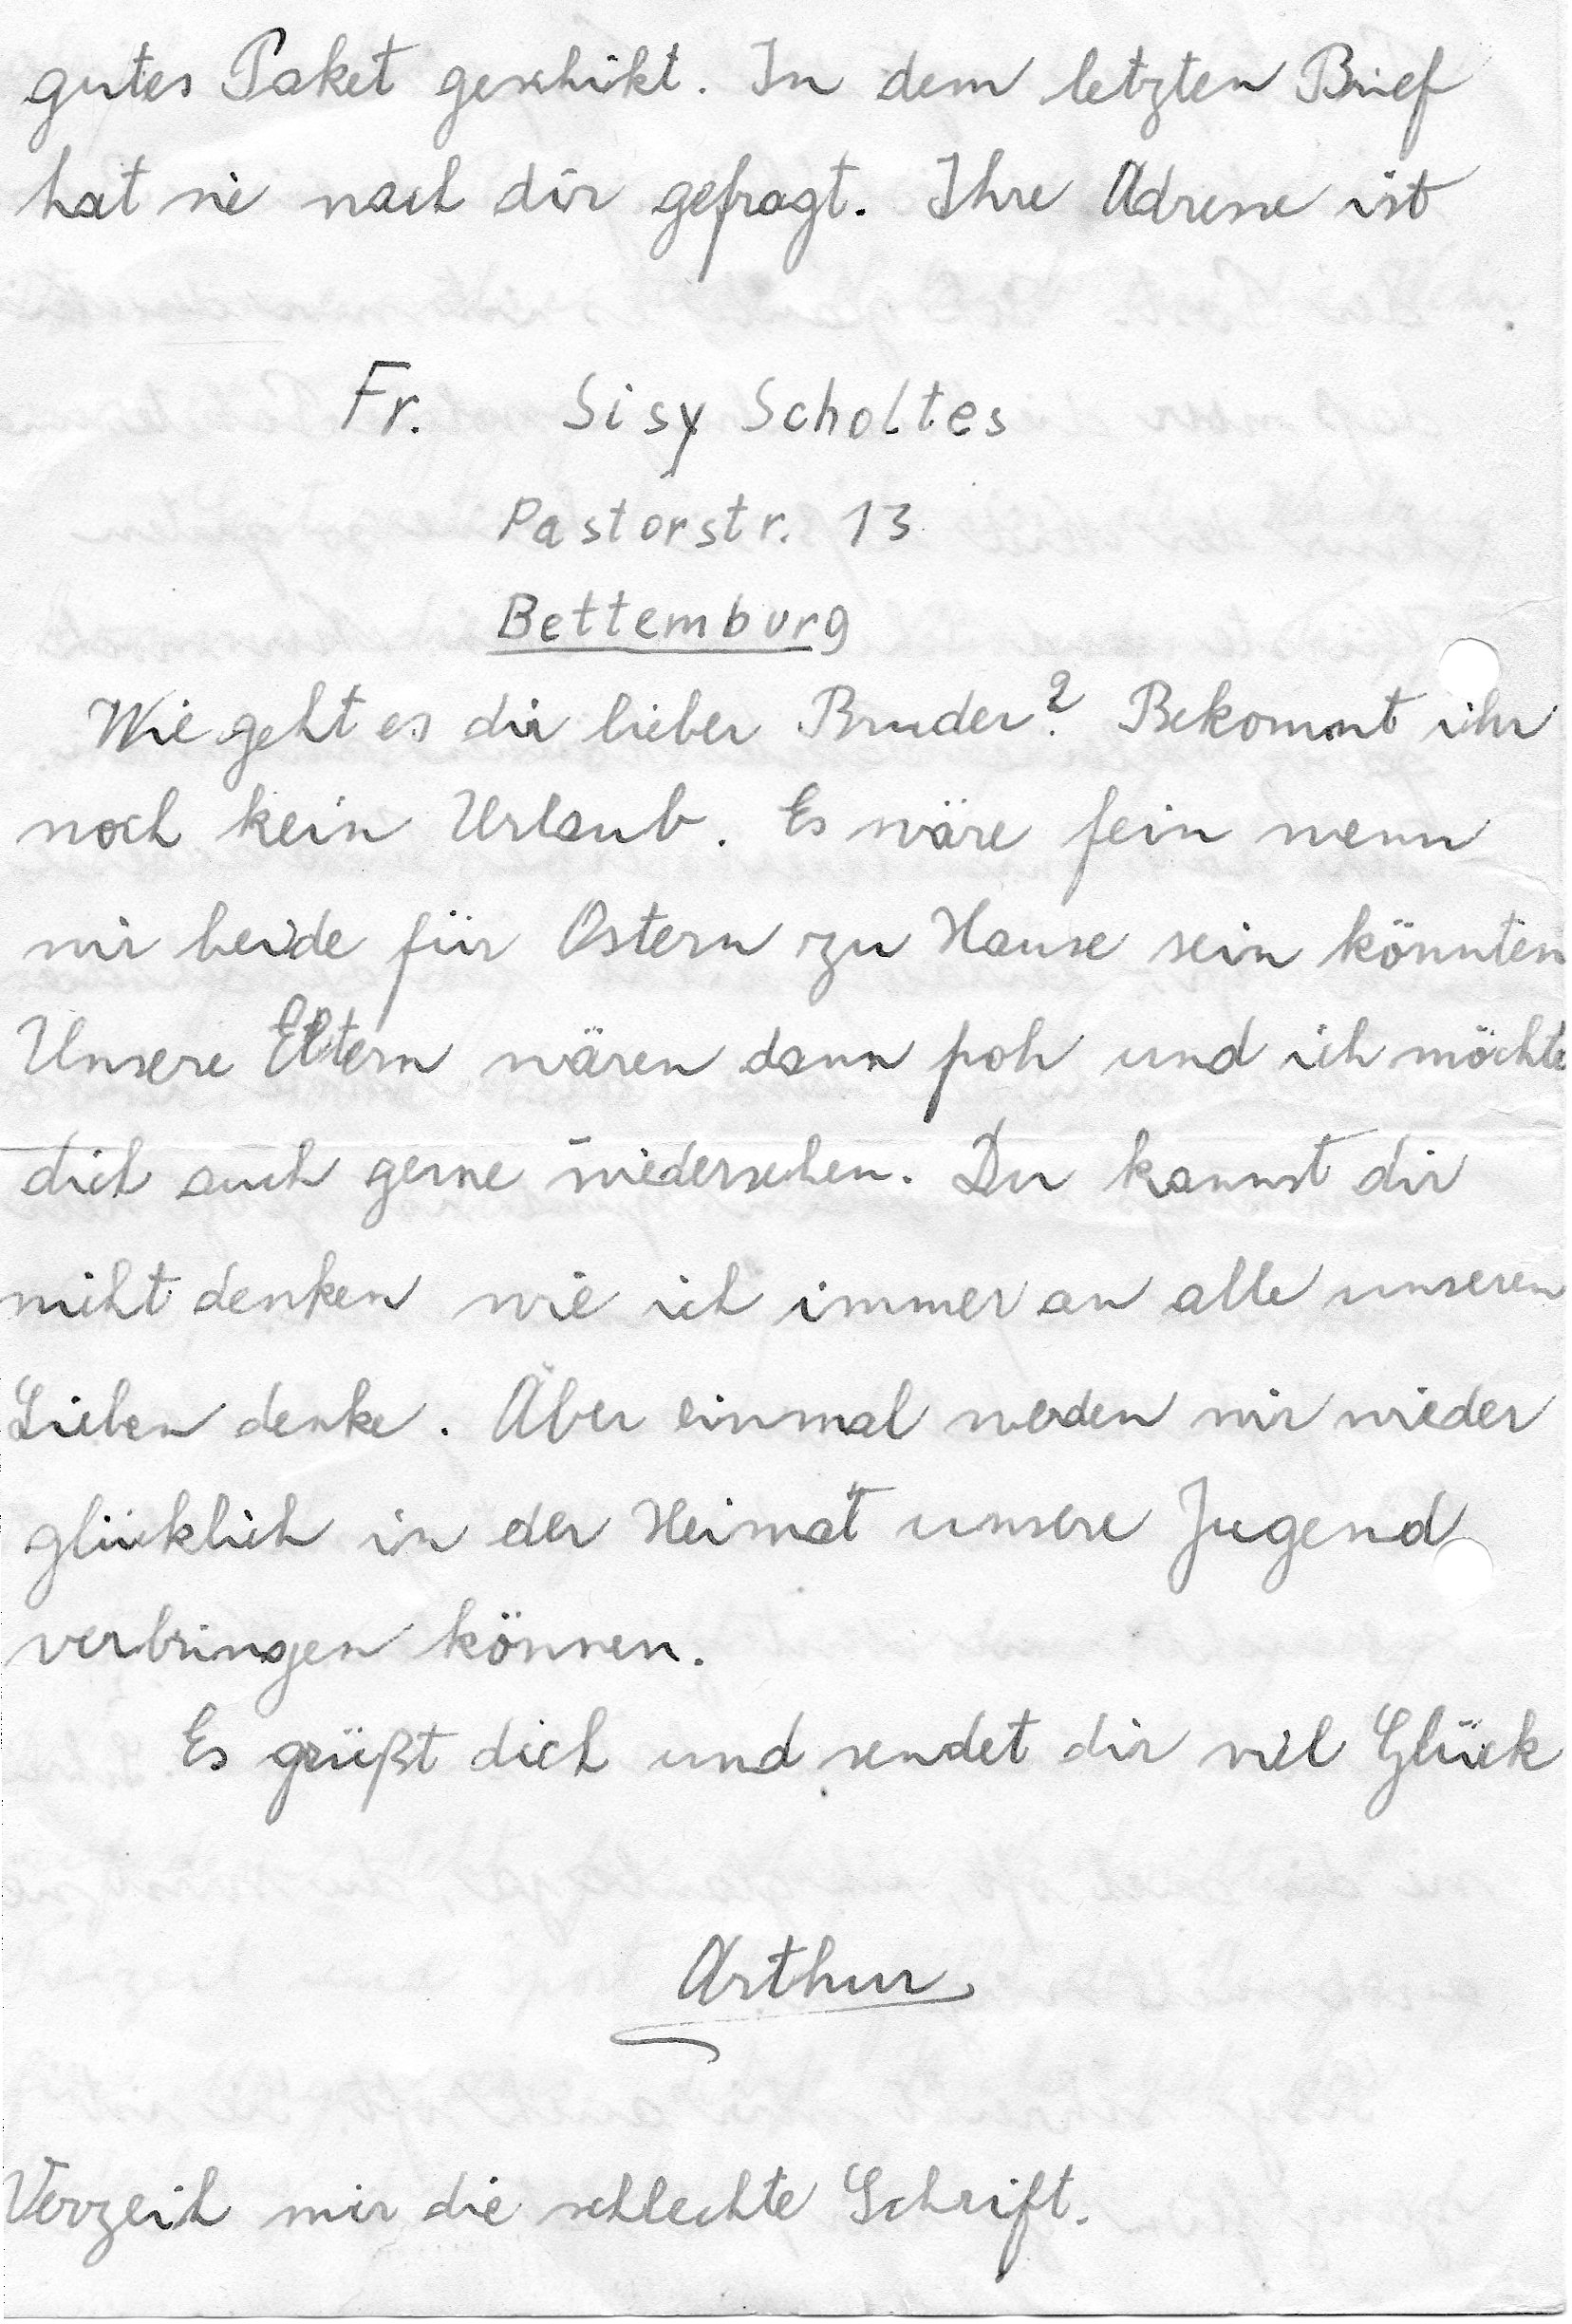 gutes Paket geschikt. In dem letzten Brief
hat sie nach dir gefragt. Ihre Adresse ist
Fr. Sisy Scholtes
Pastorstr. 13
Bettemburg
Wie geht es dir lieber Bruder? Bekommt ihr
noch kein Urlaub. Es wäre fein wenn
wir beide für Ostern zu Hause sein könnten
Unsere Eltern wären dann froh und ich möchte
dich auch gerne wiedersehen. Du kannst dir
nicht denken wie ich immer an alle unseren
Lieben denke. Aber einmal werden wir wieder
glücklich in der Heimat unsere Jugend
verbringen können.
Es grüßt dich und sendet dir viel Glück
Arthur
Verzeih mir die schlechte Schrift.